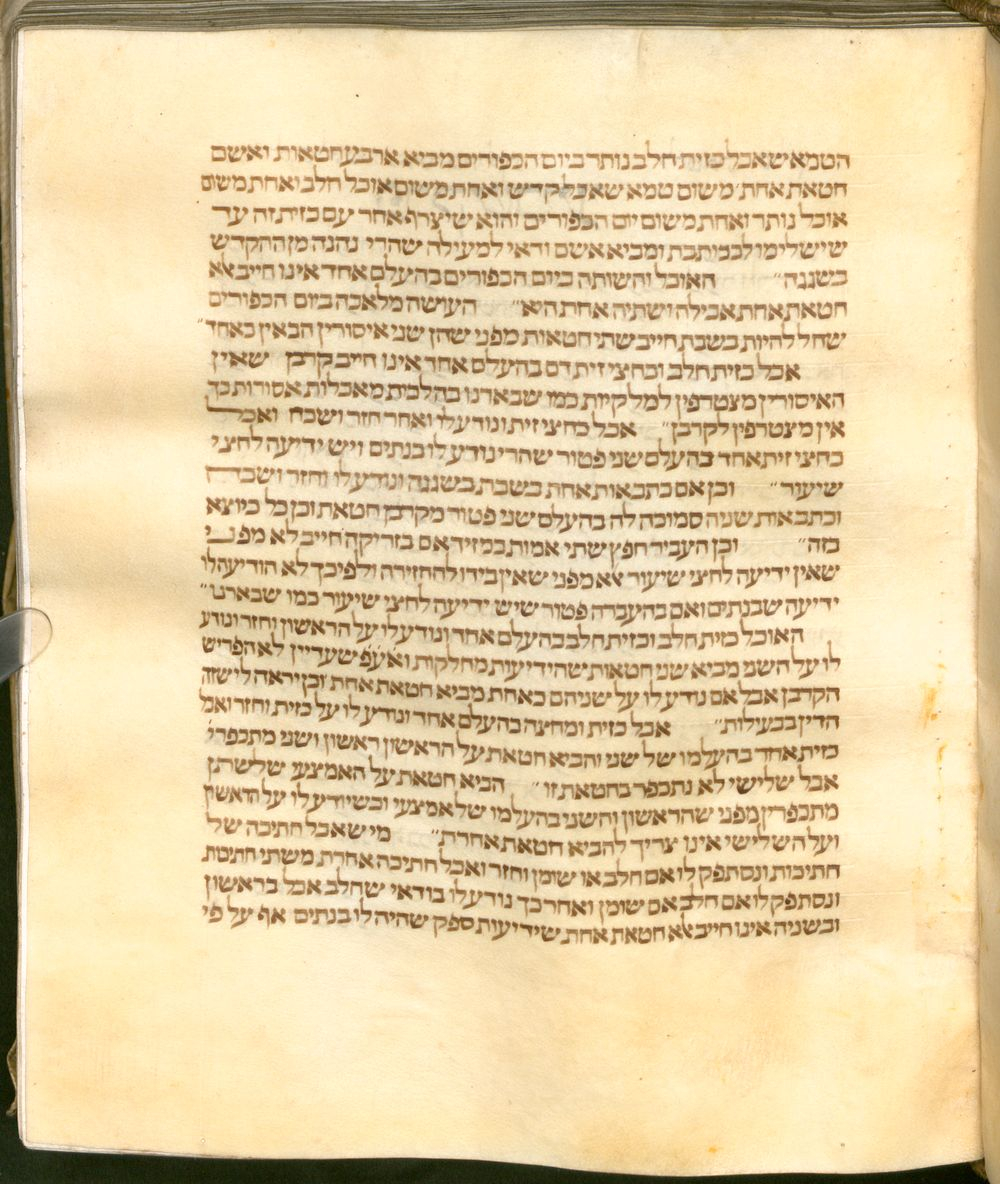 הטמא שאכל כזית חלב נותר ביום הכפורים מביא ארבע חטאות ואשם
חטאת אחת משום טמא שאכל קדש ואחת משום אוכל חלב ואחת משום
אוכל נותר ואחת משום יום הכפורים והוא שיצרף אחר עם כזית זה עד
שישלימו לככותבת ומביא אשם ודאי למעילה שהרי נהנה מן ההקדש
בשגגה״ האוכל והשותה ביום הכפורים בהעלם אחד אינו חייב אלא
חטאת אחת אכילה ושתיה אחת היא״ העושה מלאכה ביום הכפורים
שחל להיות בשבת חייב שתי חטאות מפני שהן שני איסורין הבאין כאחד״
אכל כזית חלב וכחצי זית דם בהעלם אחד אינו חייב קרבן שאין
האיסורין מצטרפין למלקיות כמו שבארנו בהלכות מאכלות אסורות כך
אין מצטרפין לקרבן״ אכל כחצי זית ונודע לו ואחר חזר ושכח ואכל
כחצי זית אחד בהעלם שני פטור שהרי נודע לו בנתים ויש ידיעה לחצי
שיעור״ וכן אם כתב אות אחת בשבת בשגגה ונודע לו וחזר ושכח
וכתב אות שניה סמוכה לה בהעלם שני פטור מקרבן חטאת וכן כל כיוצא
בזה״ וכן העביר חפץ שתי אמות במזיד אם בזריקה חייב לא מפני
שאין ידיעה לחצי שיעור אלא מפני שאין בידו להחזירה ולפיכך לא הודיעה לו
ידיעה שבנתים ואם בהעברה פטור שיש ידיעה לחצי שיעור כמו שבארנו״
האוכל כזית חלב וכזית חלב בהעלם אחד ונודע לו על הראשון וחזר ונודע
לו על השני מביא שני חטאות שהידיעות מחלקות ואעפ שעדיין לא הפריש
הקרבן אבל אם נודע לו על שניהם כאחת מביא חטאת אחת וכן יראה לי שזה
הדין בבעילות״ אכל כזית ומחצה בהעלם אחד ונודע לו על כזית וחזר ואכל
כזית אחד בהעלמו של שני והביא חטאת על הראשון ראשון ושני מתכפרי
אבל שלישי לא נתכפר בחטאת זו״ הביא חטאת על האמצעי שלשתן
מתכפרין מפני שהראשון והשני בהעלמו של אמצעי וכשיודע לו על הראשון
ועל השלישי אינו צריך להביא חטאת אחרת״ מי שאכל חתיכה של
חתיכות ונסתפק לו אם חלב או שומן וחזר ואכל חתיכה אחרת משתי חתיכות
ונסתפק לו אם חלב אם שומן ואחר כך נודע לו בודאי שחלב אכל בראשון
ובשניה אינו חייב אלא חטאת אחת שידיעות ספק שהיה לו בנתים אף על פי